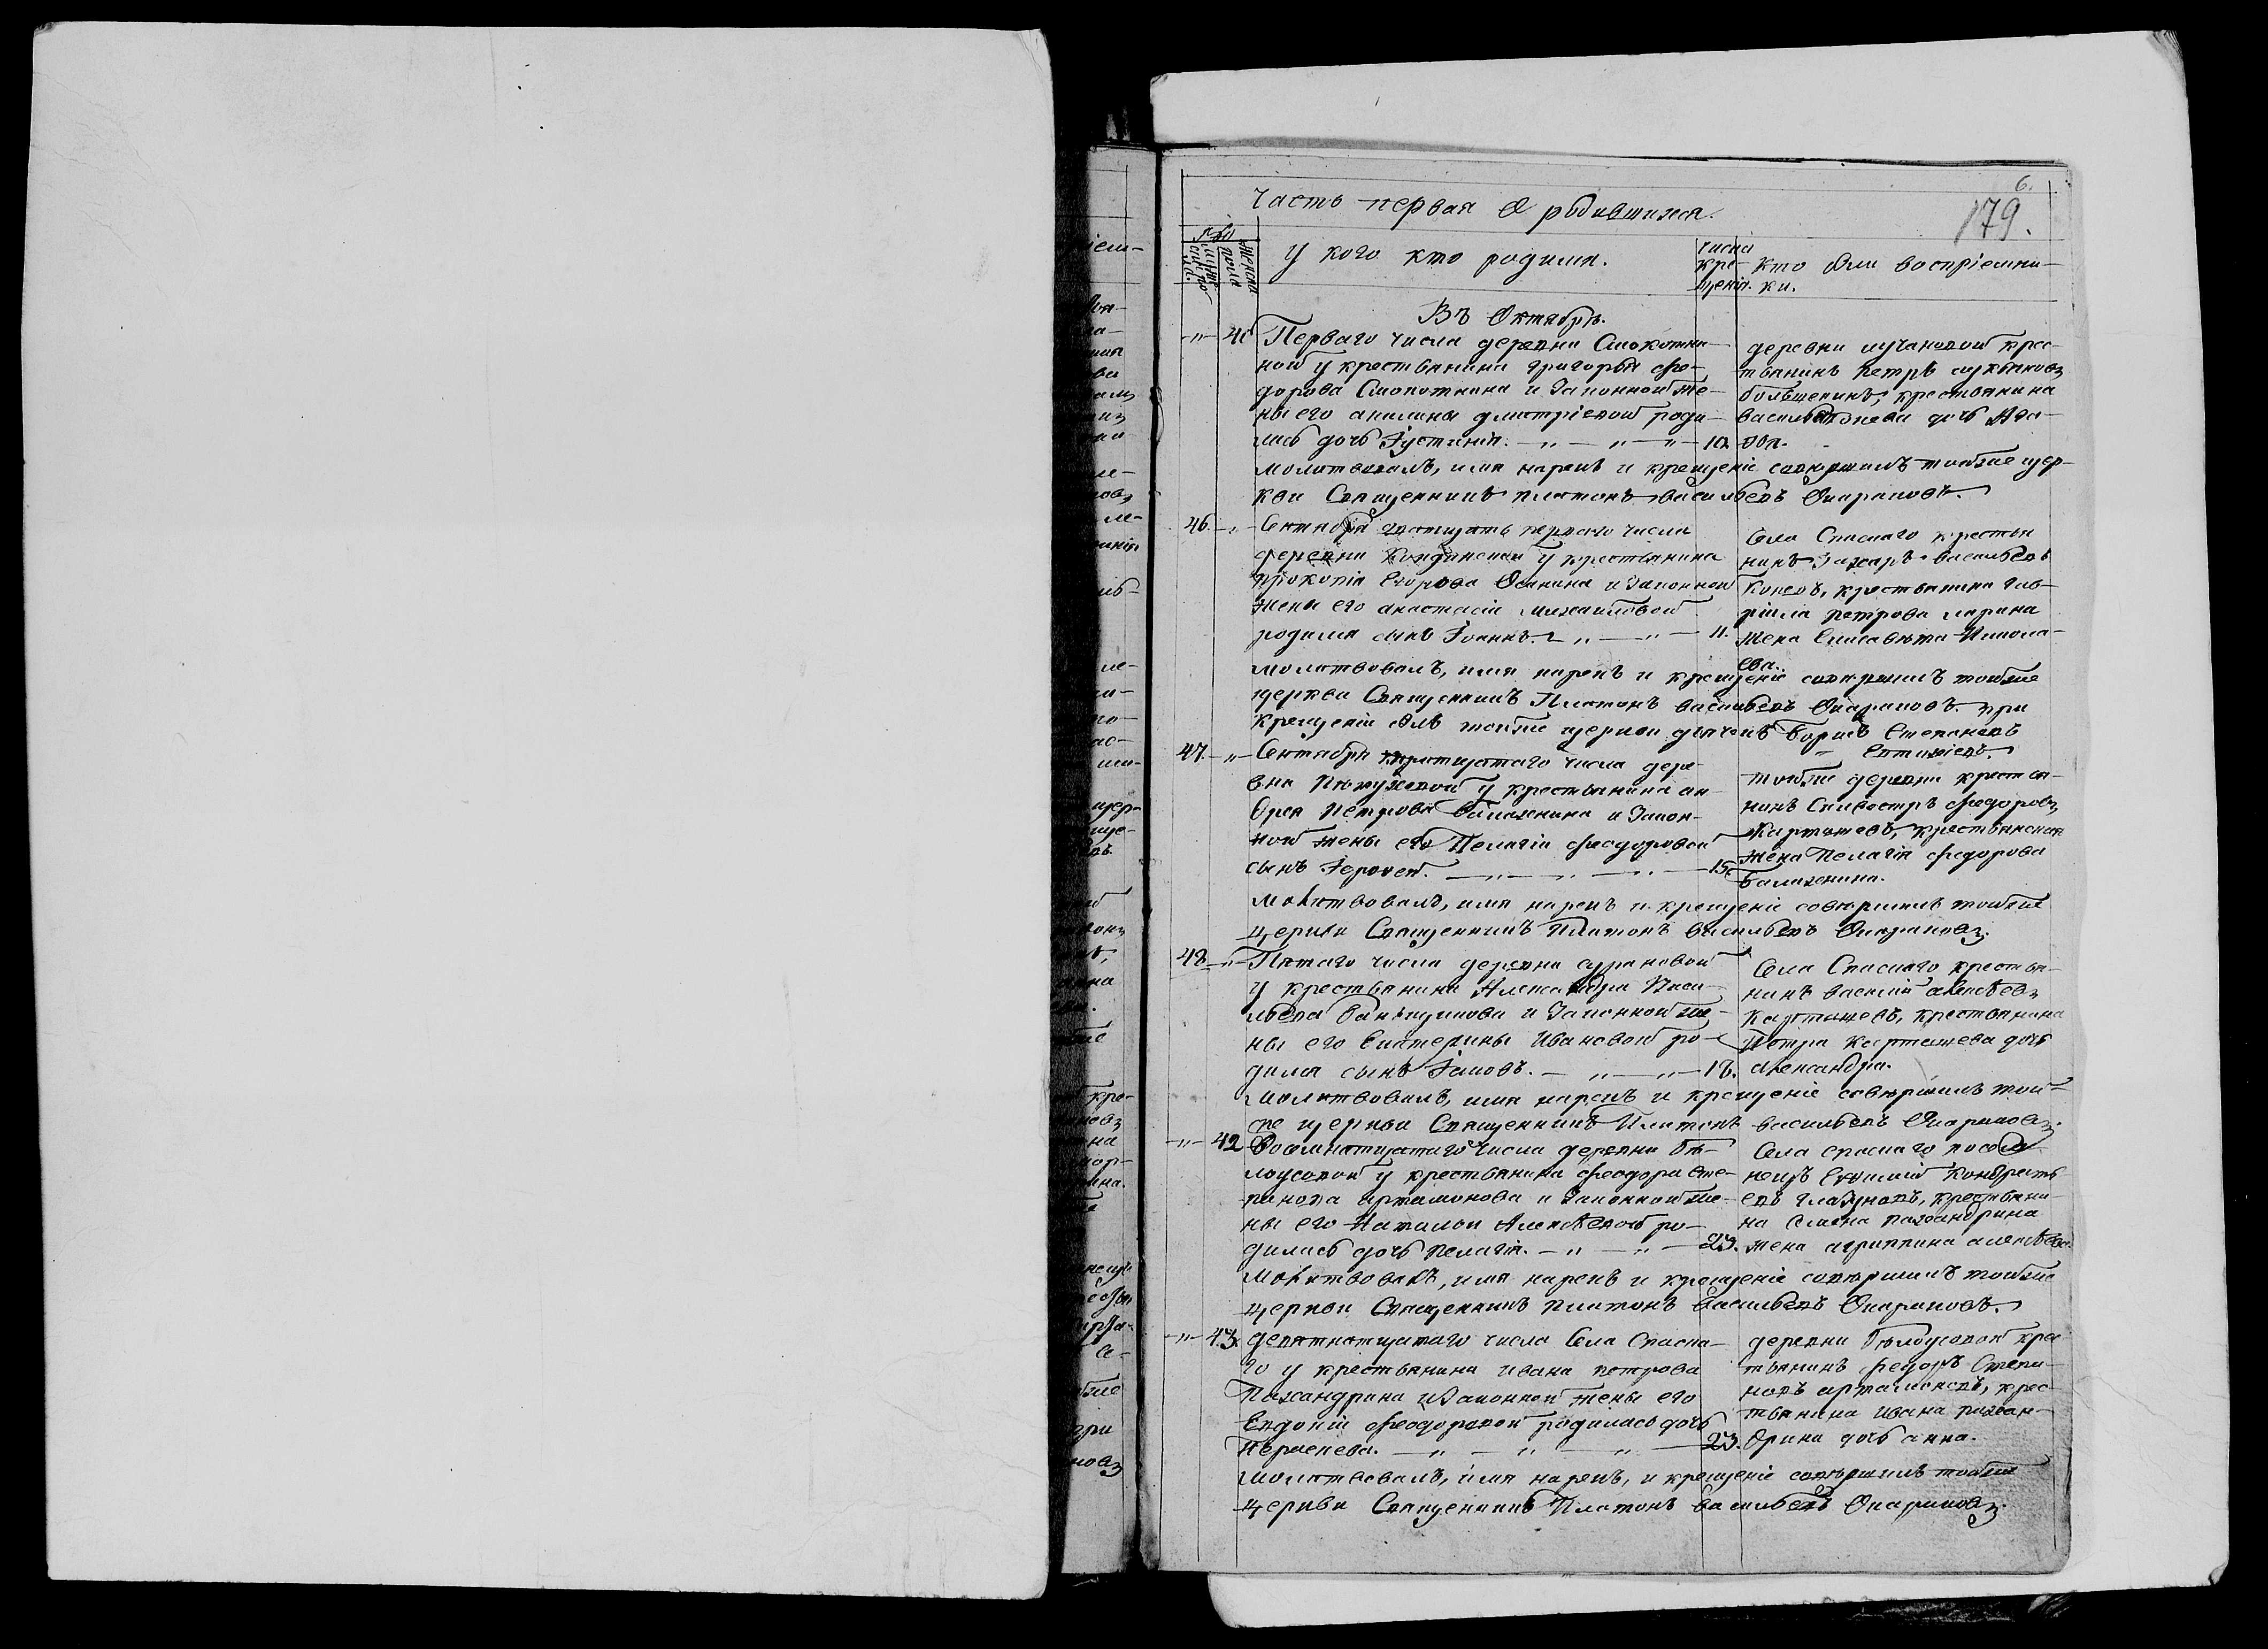 6.
179.
Часть первая О родившихся.
У кого кто родился.
Числа
кре-
щенія.
Кто были воспріемни-
ки.
Въ Октябрѣ.
-"- 41 Перваго числа деревни Смокотни-
ной у крестьянина Григорья Фео-
дорова Смокотнина и Законной же-
ны его акилины дмитріевой роди-
лась дочь Іустинія. -"- -"- 10.
деревни лучановой крес-
тьянинъ Петръ
крестьянина
дочь
молитвовалъ, имя нарекъ и крещеніе совершилъ тойже цер-
кви Священникъ платонъ васильевъ Окараковъ.
46. -"- Сентября дватцать перваго числа
деревни у крестьянина
прокопія Егорова Осанина и Законной
жены его анастасіи михайловой
родился сынъ Іоаннъ. -"- -"- 11.
Села Спаскаго крестья
нинъ Захаръ васильевъ
крестьянина гав-
ріила петрова ларина
жена Елисавета Никола-
ева.
молитвовалъ, имя нарекъ и крещеніе совершилъ тойже
церкви Священникъ Платонъ васильевъ Окараковъ. при
крещеніи былъ тойже церкви дьячекъ Борисъ Степановъ
Евтихіевъ.
47. -"- Сентября тритцатаго числа дере-
вни у крестьянина ан-
дрея петрова Балахнина и Закон-
ной жены его Пелагіи феодоровой
сынъ Іерофей. -"- -"- -"- 15.
тойже деревни крестья-
нинъ Силвестръ федоровъ
Карташевъ, крестьянская
жена Пелагія федорова
Балахнина.
молитвовалъ, имя нарекъ и крещеніе совершилъ тойже
церкви Священникъ Платонъ васильевъ Окараковъ.
48. -"- Пятаго числа деревни сурановой
у крестьянина Александра Васи-
льева и Законной же-
ны его Екатерины Ивановой ро-
дился сынъ Іаковъ. -"- -"- 18.
Села Спаскаго крестья-
нинъ василій алексѣевъ
Карташевъ, крестьянина
Петра Карташева дочь
александра.
молитвовалъ, имя нарекъ и крещеніе совершилъ той-
же церкви Священникъ Платонъ васильевъ Окараковъ.
-"- 42 Восмнатцатаго числа деревни Бѣ-
лоусовой у крестьянина феодора Сте-
панова артамонова и Законной же-
ны его Наталіи Алексѣевой ро-
дилась дочь пелагія. -"- -"- 23.
Села спаскаго поселе-
нецъ Евфимій Кондрать
евъ глазуновъ, крестьяни-
на Семена пахандрина
жена агриппина алексѣева.
молитвовалъ, имя нарекъ и крещеніе совершилъ тойже
церкви Священникъ платонъ васильевъ Окараковъ.
-"- 43. девятнатцатаго числа Села Спаска-
го у крестьянина ивана петрова
Пахандрина и Законной жены его
Евдокіи феодоровой родилась дочь
Параскева. -"- -"- -"- 23.
деревни Бѣлоусовой крес
тьянинъ федоръ Степа-
новъ артамоновъ, крес-
тьянина ивана пахан-
дрина дочь анна.
молитвовалъ, имя нарекъ, и крещеніе совершилъ тойже
церкви Священникъ Платонъ васильевъ Окараковъ.